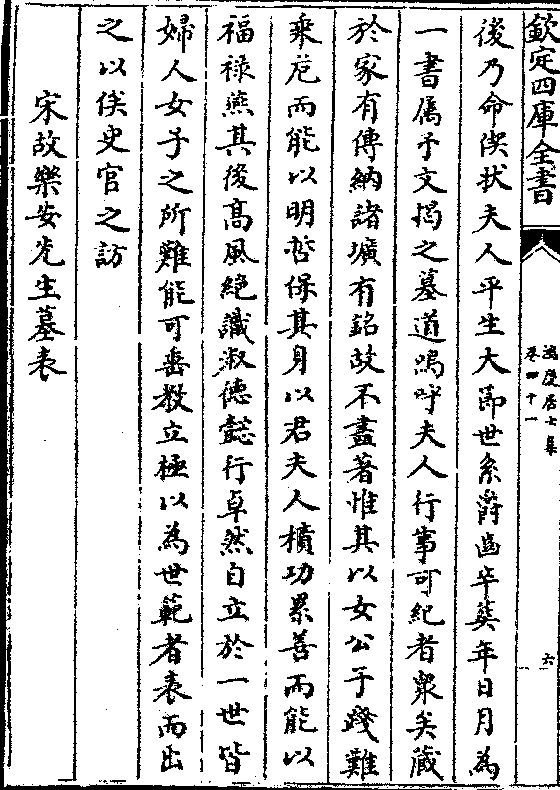 欽定四庫全書
鴻慶居士集
卷四十一
六
後乃命俟狀夫人平生大節世系爵齒卒葬年日月為
一書屬予文揭之墓道嗚呼夫人行事可紀者衆矣藏
於家有傳納諸壙有銘故不盡著惟其以女公子踐難
乘危而能以明哲保其身以君夫人積功累善而能以
福祿燕其後高風絶識淑德懿行卓然自立於一世皆
婦人女子之所難能可垂教立極以為世範者表而出
之以俟史官之訪
宋故樂安先生墓表